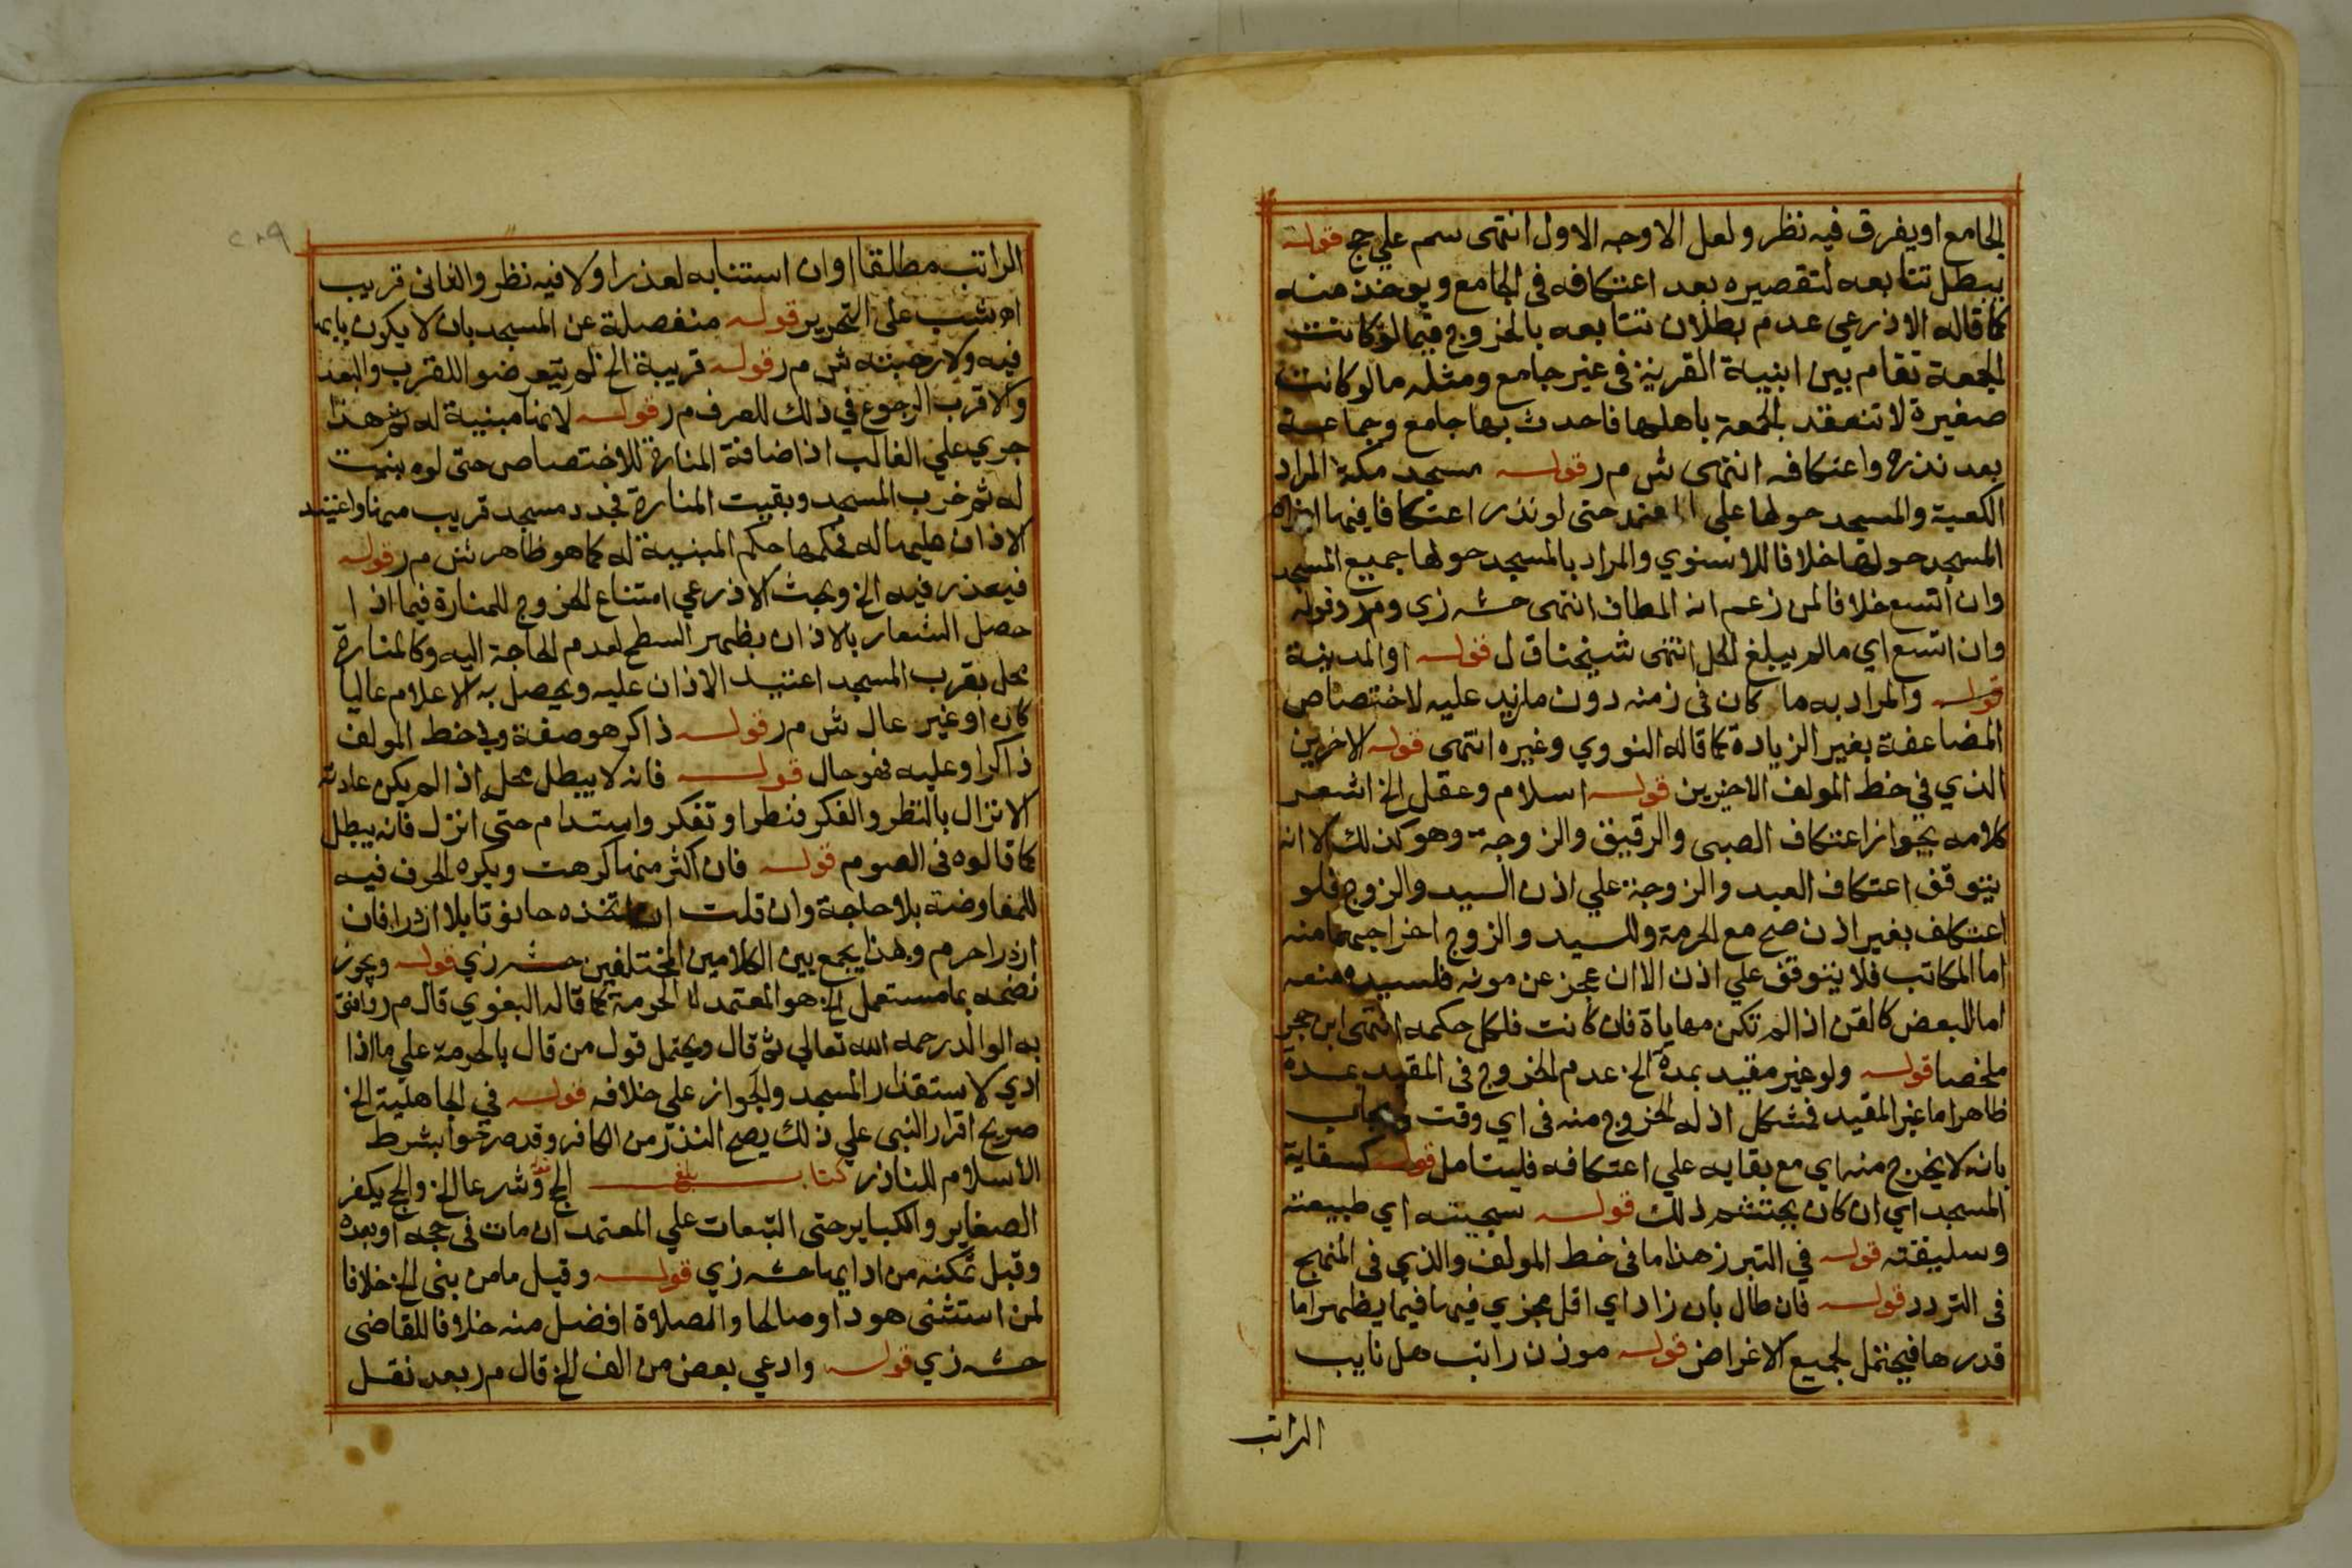 الجامع او يفرق فيه نظر ولعل الاوجه الاول انتهى سم علي حج قوله
يبطل تتابعه لتقصيره بعد اعتكافه فى الجامع ويوخذ منه
كما قاله الاذرعي عدم بطلان تتابعه بالخروج فيما لو كانت
الجمعة تقام بين ابنية القرية فى غير جامع ومثله ما لو كانت
صغيرة لا تنعقد الجمعة باهلها فاحدث بها جامع وجماعة
بعد نذره واعتكافه انتهى ش م ر قوله مسجد مكة المراد
الكعبة والمسجد حولها على المعتمد حتى لو نذر اعتكافا فيها اجزاه
المسجد حولها خلافا للاسنوي والمراد بالمسجد حولها جميع المسجد
وان اتسع خلافا لمن زعم انه المطاف انتهى حشـ زي و م ر وقوله
وان اتسع اي ما لم يبلغ الحل انتهى شيخنا ق ل قوله او المدينة
قوله والمراد به ما كان فى زمنه دون ما زيد عليه لاختصاص
المضاعفة بغير الزيادة كما قاله النووي وغيره انتهى قوله الاخرين
الذي في خط المولف الاخيرين قوله اسلام وعقل الخ اشعر
كلامه بجواز اعتكاف الصبى والرقيق والزوجة وهو كذلك الا انه
يتوقف اعتكاف العبد والزوجة علي اذن السيد والزوج فلو
اعتكف بغير اذن صح مع الحرمة وللسيد والزوج اخراجهما منه
اما المكاتب فلا يتوقف علي اذن الا ان عجز عن مونه فلسيده منعه
اما المبعض كالقن اذا لم تكن مهاياة فان كانت فلكل حكمه انتهى ابن حجر
ملخصا قوله ولو غير مقيد بمدة الخ عدم الخروج فى المقيد بمدة
ظاهر اما غير المقيد فمشكل اذ له الخروج منه فى اي وقت ويجاب
بانه لا يخرج منه اي مع بقايه علي اعتكافه فليتامل قوله كسقاية
المسجد اي ان كان يحتشم ذلك قوله سجيته اي طبيعته
وسليقته قوله في التبرز هذا ما فى خط المولف والذي فى المنهج
فى التردد قوله فان طال بان زاد اي اقل مجزي فيها فيما يظهر اما
قدرها فيحتمل لجميع الاغراض قوله موذن راتب هل نايب
الراتب
٢٠٩
الراتب مطلقا او ان استنابه لعذر اولا فيه نظر والثانى قريب
اهـ شب على التحرير قوله منفصلة عن المسجد بان لا يكون بابها
فيه ولا رحبته ش م ر قوله قريبة الخ لم يتعرضوا للقرب والبعد
والاقرب الرجوع في ذلك للعرف م ر قوله لانها مبنية له ثم هذا
جري علي الغالب اذ اضافة المنارة للاختصاص حتى لو بنيت
له ثم خرب المسجد وبقيت المنارة فجدد مسجد قريب منها واعتيد
الاذان عليها له فحكمها حكم المبنية له كما هو ظاهر ش م ر قوله
فيعذر فيه الخ وبحث الاذرعي امتناع الخروج للمنارة فيما اذا
حصل الشعار بالاذان بظهر السطح لعدم الحاجة اليه وكالمنارة
محل بقرب المسجد اعتيد الاذان عليه ويحصل به الاعلام عاليا
كان او غير عال ش م ر قوله ذاكر هو صفة وفي خط المولف
ذاكرا وعليه فهو حال قوله فانه لا يبطل محل اذا لم يكن عادته
الانزال بالنظر والفكر فنظر او تفكر واستدام حتى انزل فانه يبطل
كما قالوه فى الصوم قوله فان اكثر منها كرهت ويكره الحرف فيه
للمفاوضة بلا حاجة وان قلت ان اتخذه حانوتا بلا ازدرا فان
ازدرا حرم وبهذا يجمع بين الكلامين المختلفين حشـ زي قوله ويجوز
نضحه بما مستعمل الخ هو المعتمد لا الحرمة كما قاله البغوي قال م ر وافتى
به الوالد رحمه الله تعالي ثم قال ويحتمل قول من قال بالحرمة علي ما اذا
ادي لاستقذار المسجد والجواز على خلافه قوله في الجاهلية الخ
صريح اقرار النبى علي ذلك يصح النذر من الكافر وقد صرحوا بشرط
الاسلام للناذر كتاب بلغ الحج وشرعا الخ والحج يكفر
الصغاير والكباير حتى التبعات علي المعتمد ان مات فى حجه او بعده
وقبل تمكنه من ادايها حشـ زي قوله وقيل ما من بنى الخ خلافا
لمن استثنى هودا وصالحا والصلاة افضل منه خلافا للقاضى
حشـ زي قوله وادعي بعض من الف الخ قال م ر بعد نقل